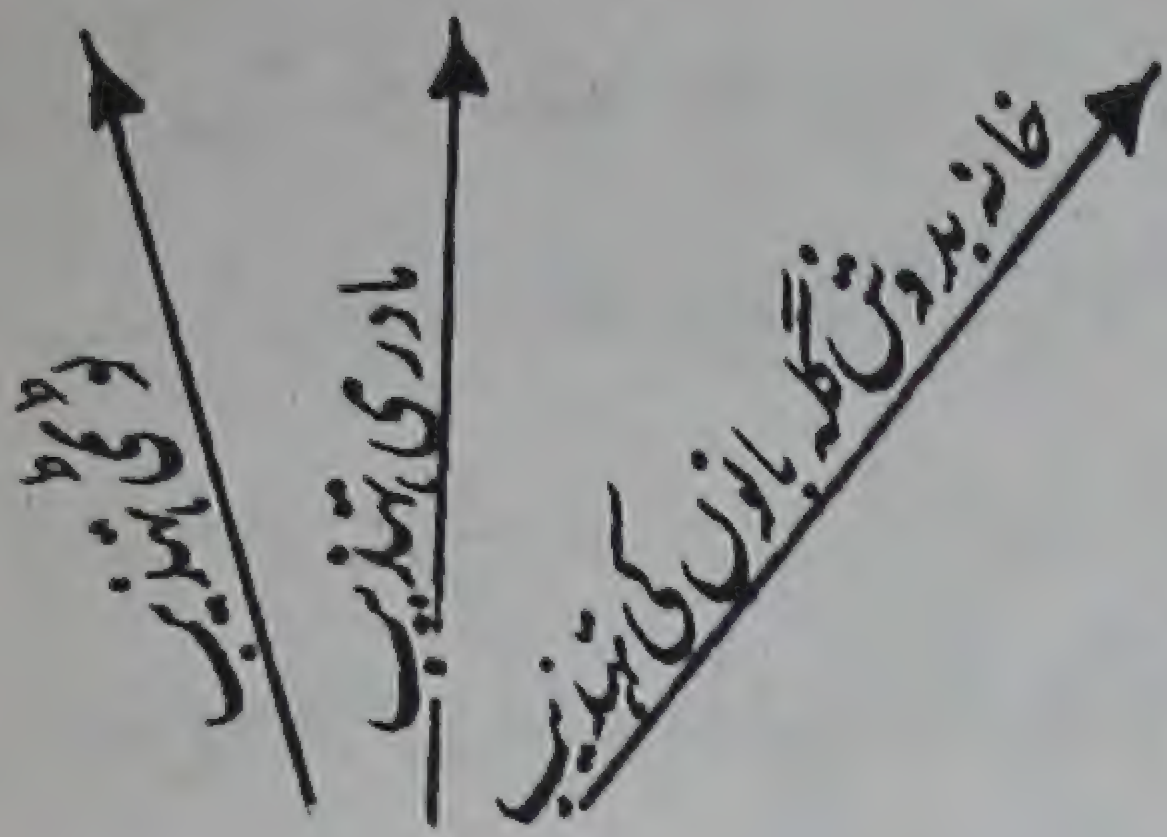 خانہ بدوش گلہ بانوں کی تہذیب
مادری تہذیب
ٹوٹمی تہذیب